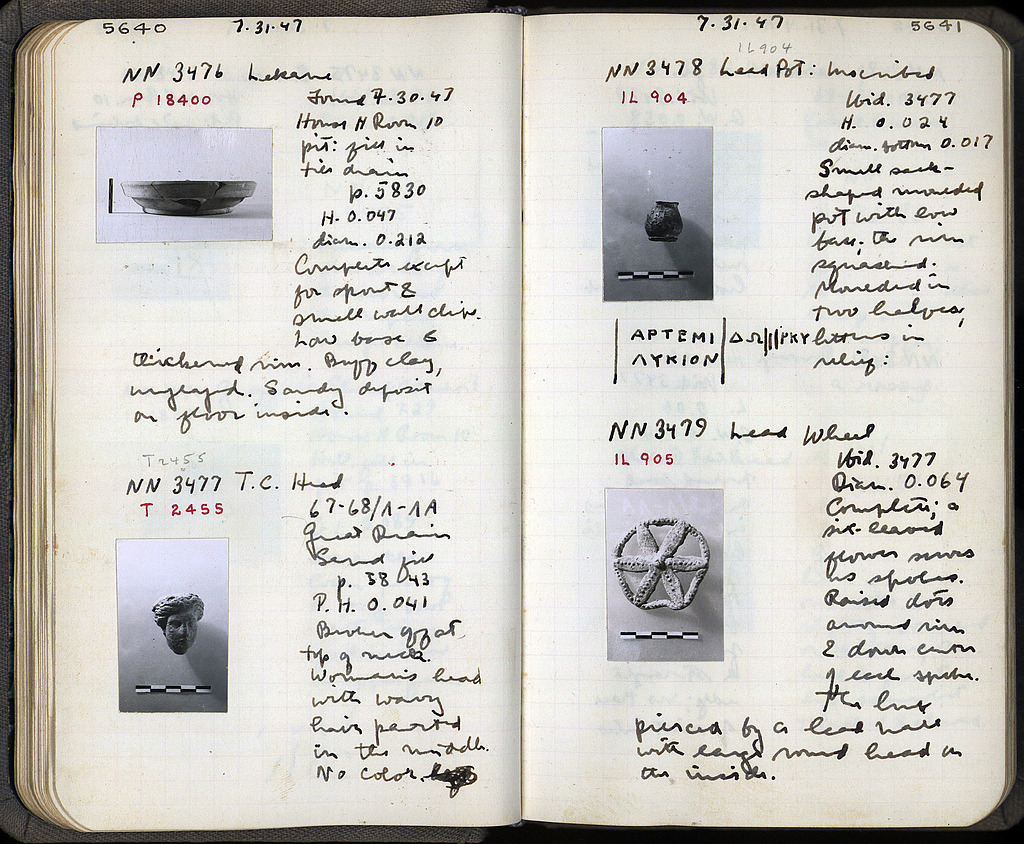 5640
7.31.47
NN 3476 Lekane
P 18400
Found 7.30.47
House H Room 10
pit: fill in
tile drain
p. 5830
H. 0.047
diam. 0.212
Complete except
for spout &
small wall chip.
Low base &
thickened rim. Buff clay,
unglazed. Sandy deposit
on floor inside.
T2455
NN 3477 T.C. Head
T 2455
67-68/Λ-ΛΑ
Great Drain
Sand fill
p. 5843
P.H. 0.041
Broken off at
top of neck.
Woman's head
with wavy
hair parted
in the middle.
No color.
7.31.47
5641
IL904
NN 3478 Lead Pot: Inscribed
IL 904
Ibid. 3477
H. 0.024
diam. bottom 0.017
Small sack-
shaped moulded
pot with low
base, the rim
squashed.
Moulded in
two halves,
letters in
relief:
ΑΡΤΕΜΙ ΔΩ ΡΚΥ
ΛΥΚΙΟΝ
NN 3479 Lead Wheel
IL 905
Ibid. 3477
Diam. 0.064
Complete; a
six-leaved
flower serves
as spokes.
Raised dots
around rim
& down center
of each spoke.
The hub
pierced by a lead nail
with large round head on
the inside.